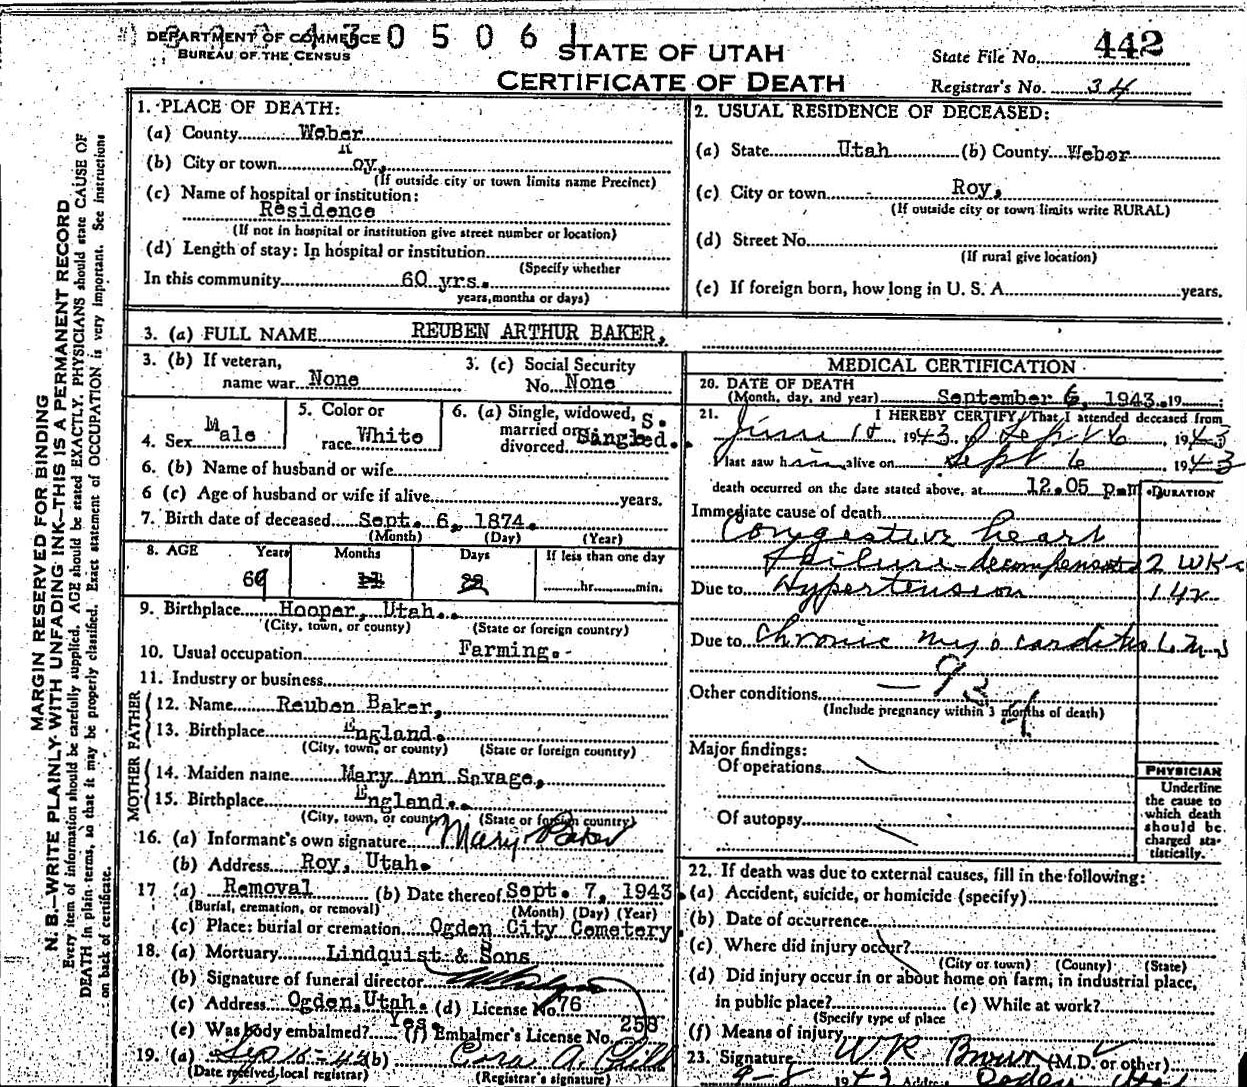 DEPARTMENT OF COMMERCE
BUREAU OF THE CENSUS
4 3 0 5 0 6 1
STATE OF UTAH
CERTIFICATE OF DEATH
State File No. 442
Registrar's No. 34
MARGIN RESERVED FOR BINDING
N. B.—WRITE PLAINLY WITH UNFADING INK—THIS IS A PERMANENT RECORD
Every item of information should be carefully supplied. AGE should be stated EXACTLY. PHYSICIANS should state CAUSE OF
DEATH in plain terms, so that it may be properly classified. Exact statement of OCCUPATION is very important. See instructions
on back of certificate.
1. PLACE OF DEATH:
(a) County Weber
(b) City or town Roy,
(If outside city or town limits name Precinct)
(c) Name of hospital or institution:
Residence
(If not in hospital or institution give street number or location)
(d) Length of stay: In hospital or institution
(Specify whether
In this community 60 yrs.
years, months or days)
2. USUAL RESIDENCE OF DECEASED:
(a) State Utah (b) County Weber
(c) City or town Roy,
(If outside city or town limits write RURAL)
(d) Street No.
(If rural give location)
(e) If foreign born, how long in U. S. A. years.
3. (a) FULL NAME REUBEN ARTHUR BAKER,
3. (b) If veteran,
name war None
3. (c) Social Security
No. None
4. Sex Male
5. Color or
race White
6. (a) Single, widowed,
married or
divorced Single
6. (b) Name of husband or wife
6 (c) Age of husband or wife if alive years.
7. Birth date of deceased Sept. 6, 1874.
(Month) (Day) (Year)
8. AGE Years Months Days If less than one day
69 11 hr. min.
9. Birthplace Hooper, Utah..
(City, town, or county) (State or foreign country)
10. Usual occupation Farming.
11. Industry or business
FATHER
12. Name Reuben Baker,
13. Birthplace England.
(City, town, or county) (State or foreign country)
MOTHER
14. Maiden name Mary Ann Savage,
15. Birthplace England..
(City, town, or county) (State or foreign country)
16. (a) Informant's own signature Mary Baker
(b) Address Roy, Utah.
17 (a) Removal (b) Date thereof Sept. 7, 1943.
(Burial, cremation, or removal) (Month) (Day) (Year)
(c) Place: burial or cremation Ogden City Cemetery
18. (a) Mortuary Lindquist & Sons
(b) Signature of funeral director
(c) Address Ogden, Utah. (d) License No. 76
(e) Was body embalmed? Yes. (f) Embalmer's License No. 258
19. (a) (b) Cora A.
(Date received local registrar) (Registrar's signature)
MEDICAL CERTIFICATION
20. DATE OF DEATH
(Month, day, and year) September 6, 1943. 19
21. I HEREBY CERTIFY, That I attended deceased from
June 10 1943, Sept 6, 1943
I last saw him alive on Sept 6, 1943
death occurred on the date stated above, at 12.05 p.m.
DURATION
Immediate cause of death
Congestive heart
failure - decompensated 2 wks
Due to Hypertension 1 yr
Due to Chronic myocarditis 6 ms
Other conditions
(Include pregnancy within 3 months of death)
Major findings:
Of operations
Of autopsy
PHYSICIAN
Underline
the cause to
which death
should be
charged sta-
tistically.
22. If death was due to external causes, fill in the following:
(a) Accident, suicide, or homicide (specify)
(b) Date of occurrence
(c) Where did injury occur?
(City or town) (County) (State)
(d) Did injury occur in or about home on farm, in industrial place,
in public place? (e) While at work?
(Specify type of place
(f) Means of injury
23. Signature W R Brown (M.D. or other)
9-8 1943 Address Ogden Utah